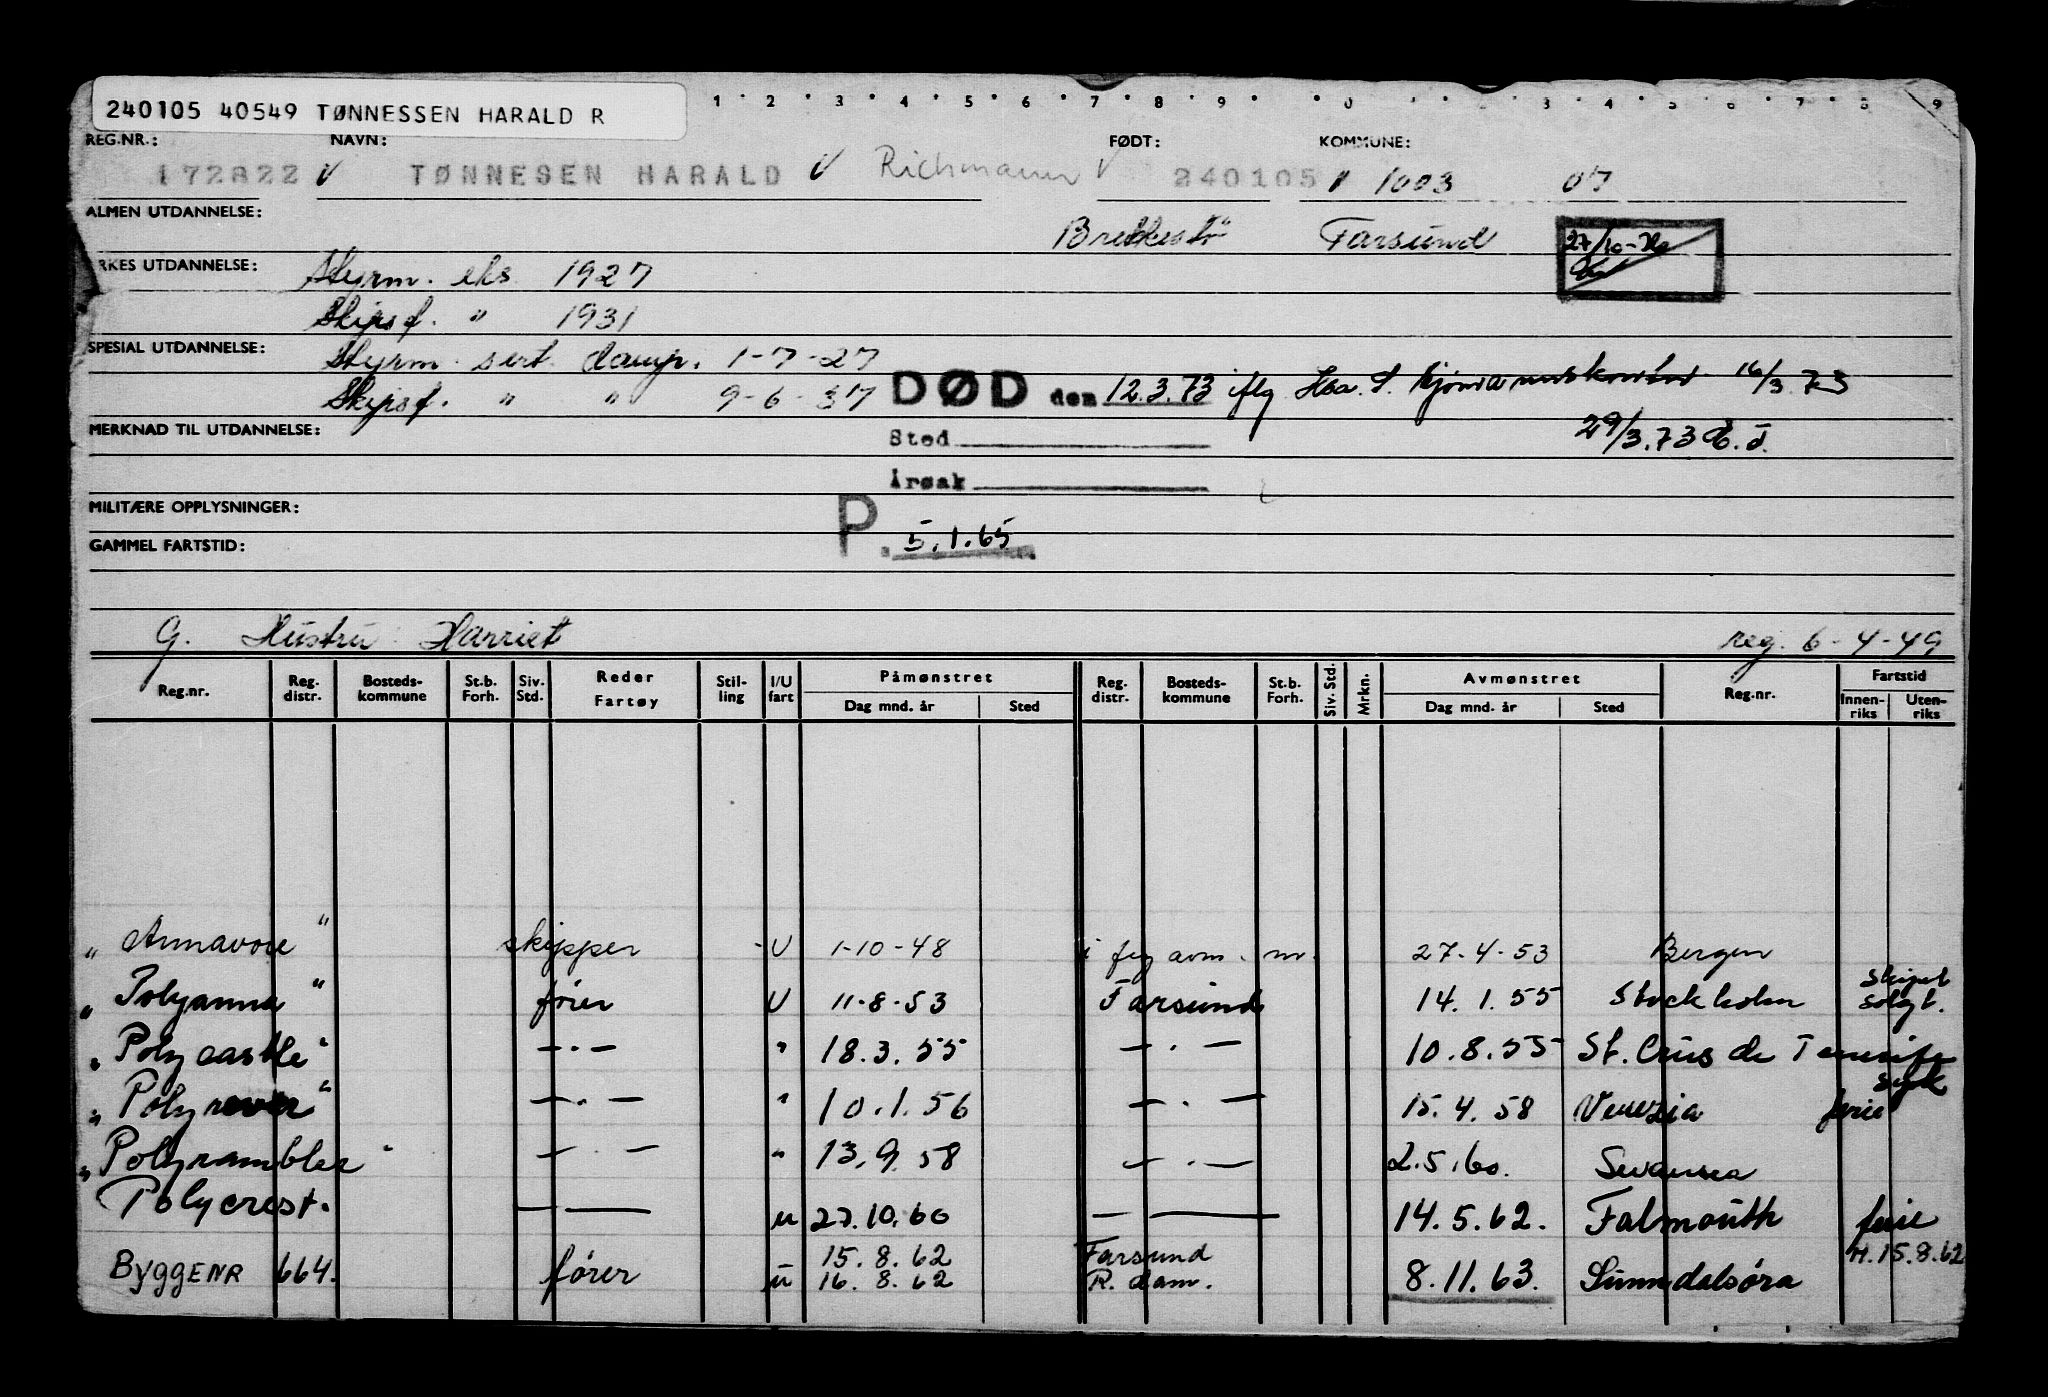 240105 40549 TØNNESSEN HARALD R
1 2 3 4 5 6 7 8 9 0 3 4 5 6 7 8 9
REG.NR.: NAVN: FØDT: KOMMUNE:
172822 TØNNESEN HARALD Richmann 240105 1003 07
ALMEN UTDANNELSE: Brekkestø Farsund 27/10-
RKES UTDANNELSE: Styrm. eks 1927
Skipsf. " 1931
SPESIAL UTDANNELSE: Styrm. sert. damp. 1-7-27
Skipsf. " " 9-6-37 DØD den 12.3.73 iflg 16/3.73
MERKNAD TIL UTDANNELSE: Sted 29/3.73
Årsak
MILITÆRE OPPLYSNINGER:
P. 5.1.65
GAMMEL FARTSTID:
G. Hustru Harriet reg. 6-4-49
Reg.nr. Reg. distr. Bosteds-kommune St.b. Forh. Siv. Std. Reder Fartøy Stil-ling I/U fart Påmønstret Dag mnd. år Sted Reg. distr. Bosteds-kommune St.b. Forh. Siv. Std. Mrkn. Avmønstret Dag mnd. år Sted Reg.nr. Fartstid Innen-riks Uten-riks
" Annavore " skipper -U 1-10-48 i flg avm. m. 27.4-53 Bergen
" Polyanna " fører U 11-8-53 Farsund 14.1.55 Stockholm Skipet solgt.
" Polycastle " -.- " 18.3.55 -.- 10.8.55 St. Crus de Tenerife syk
" Polyrever " -.- " 10.1.56 -.- 15.4.58 Venezia ferie
" Polyrambler " -.- " 13.9.58 -.- 2.5.60. Swansea
Polycrest. - — u 27.10.60 - — 14.5.62. Falmouth ferie
Byggenr 664. fører u 15.8.62 Farsund H.15.8.62
16.8.62 R.dam. 8.11.63. Sunndalsøra